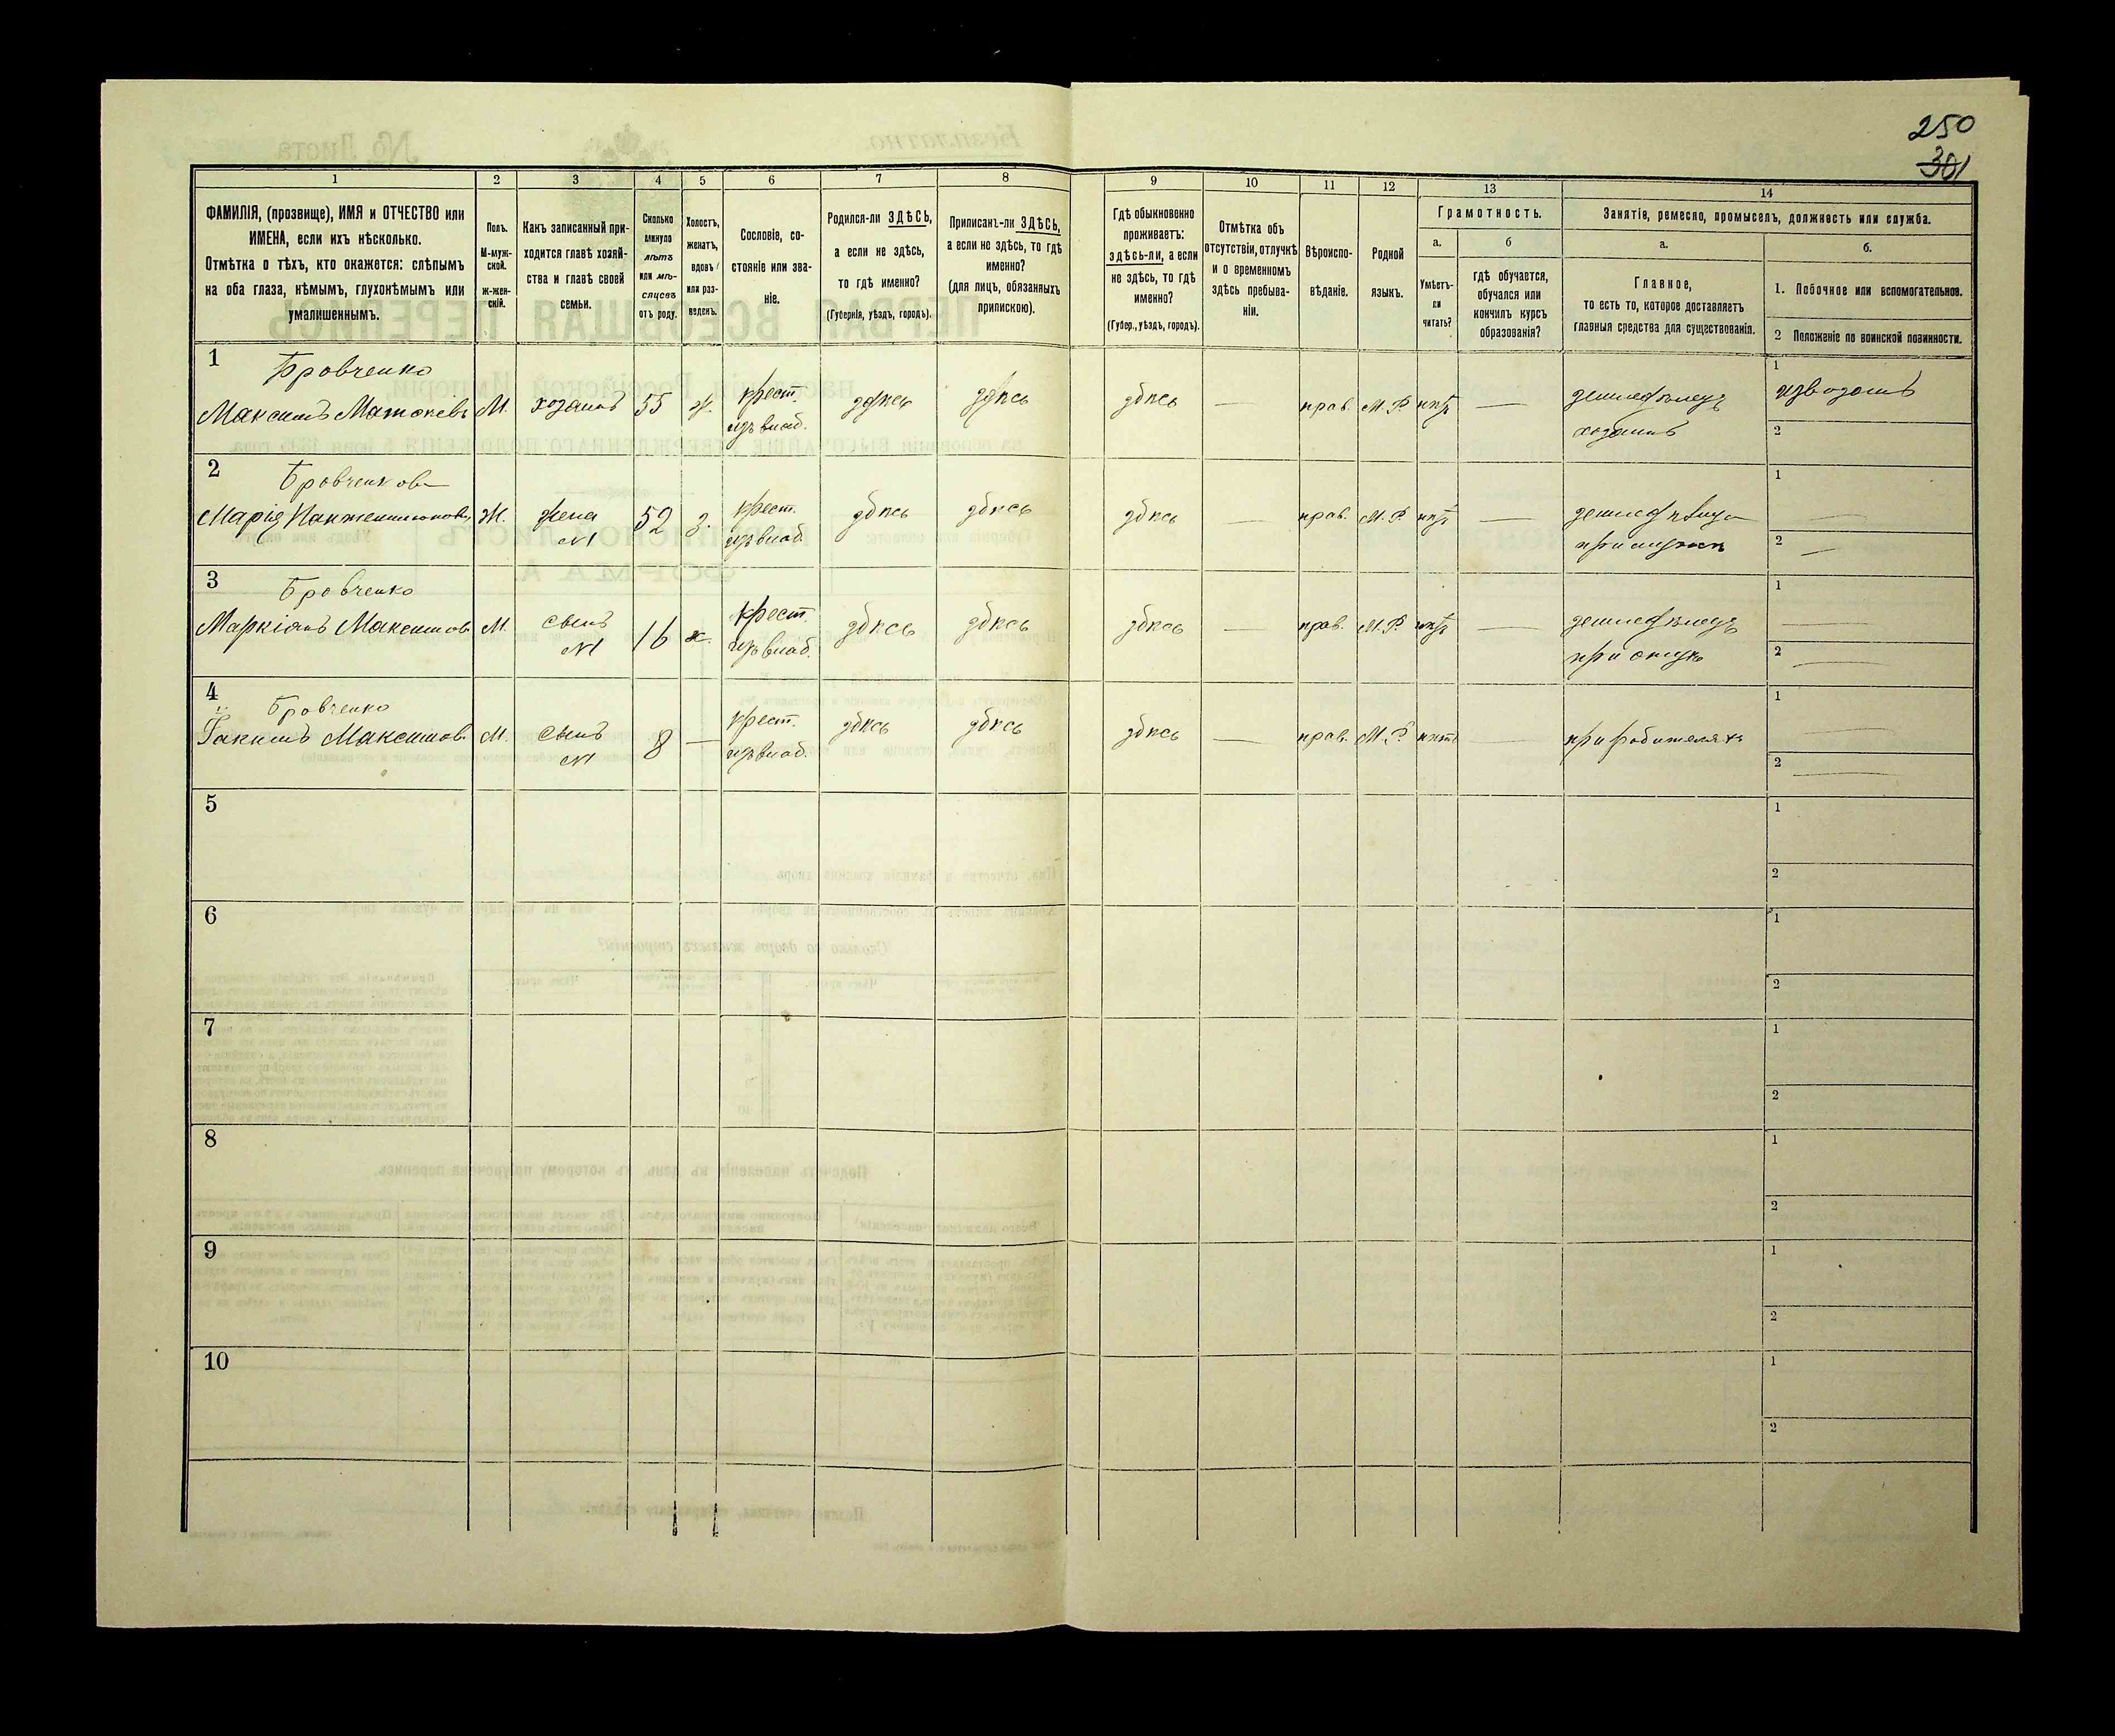 250
301
1
2
3
4
5
6
7
8
9
10
11
12
13
14
ФАМИЛІЯ, (прозвище), ИМЯ и ОТЧЕСТВО или
ИМЕНА, если ихъ нѣсколько.
Отмѣтка о тѣхъ, кто окажется: слѣпымъ
на оба глаза, нѣмымъ, глухонѣмымъ или
умалишеннымъ.
Полъ.
М-муж-
ской.
Ж-жен-
скій.
Какъ записанный при-
ходится главѣ хозяй-
ства и главѣ своей
семьи.
Сколько
минуло
лѣтъ
или мѣ-
сяцевъ
отъ роду.
Холостъ,
женатъ,
вдовъ
или раз-
веденъ.
Сословіе, со-
стояніе или зва-
ніе.
Родился-ли ЗДѢСЬ,
а если не здѣсь,
то гдѣ именно?
(Губернія, уѣздъ, городъ).
Приписанъ-ли ЗДѢСЬ,
а если не здѣсь, то гдѣ
именно?
(для лицъ, обязанныхъ
припискою).
Гдѣ обыкновенно
проживаетъ:
здѣсь-ли, а если
не здѣсь, то гдѣ
именно?
(Губер., уѣздъ, городъ).
Отмѣтка объ
отсутствіи, отлучкѣ
и о временномъ
здѣсь пребыва-
ніи.
Вѣроиспо-
вѣданіе.
Родной
языкъ.
Грамотность.
а.
Умѣетъ-
ли
читать?
б
гдѣ обучается,
обучался или
кончилъ курсъ
образованія?
Занятіе, ремесло, промыселъ, должность или служба.
а.
Главное,
то есть то, которое доставляетъ
главныя средства для существованія.
б.
1. Побочное или вспомогательное.
2 Положеніе по воинской повинности.
1
Бровченко
Максимъ М. хозяинъ 55 ж. крест. здѣсь здѣсь здѣсь — прав. М. Р. нѣтъ — земледѣлецъ 1 извозомъ
изъ влад. хозяинъ 2
2
Бровченкова
Марія Ж. жена 52 з. крест. здѣсь здѣсь здѣсь — прав. М. Р. нѣтъ — 1 —
N1 изъ влад. 2 —
3
Бровченко
Маркіанъ Максимов М. сынъ 16 х. крест. здѣсь здѣсь здѣсь — прав. М. Р. нѣтъ — земледѣлецъ 1 —
N1 изъ влад. при отцѣ 2 —
4
Бровченко
Максимов. М. сынъ 8 — крест. здѣсь здѣсь здѣсь — прав. М. Р. нѣтъ — при родителяхъ 1 —
N1 изъ влад. 2 —
5 1
2
6 1
2
7 1
2
8 1
2
9 1
2
10 1
2